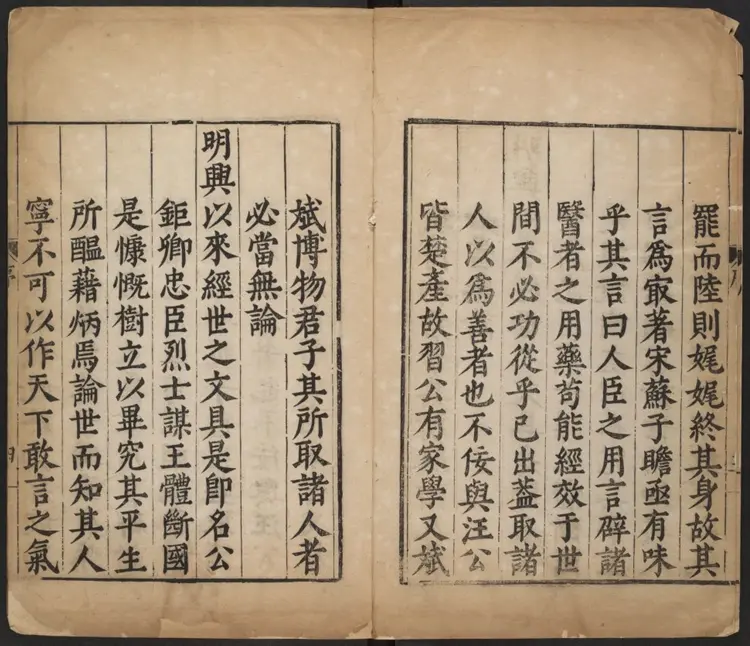 罷而陸則娓娓終其身故其
言爲㝡著宋蘇子瞻亟有味
乎其言曰人臣之用言辟諸
醫者之用藥苟能經效于世
間不必功從乎已出葢取諸
人以爲善者也不佞與汪公
皆楚產故習公有家學又斌
斌博物君子其所取諸人者
必當無論
明興以來經世之文具是卽名公
鉅卿忠臣烈士謀王體斷國
是慷慨樹立以畢究其平生
所醞藉炳焉論世而知其人
寧不可以作天下敢言之氣